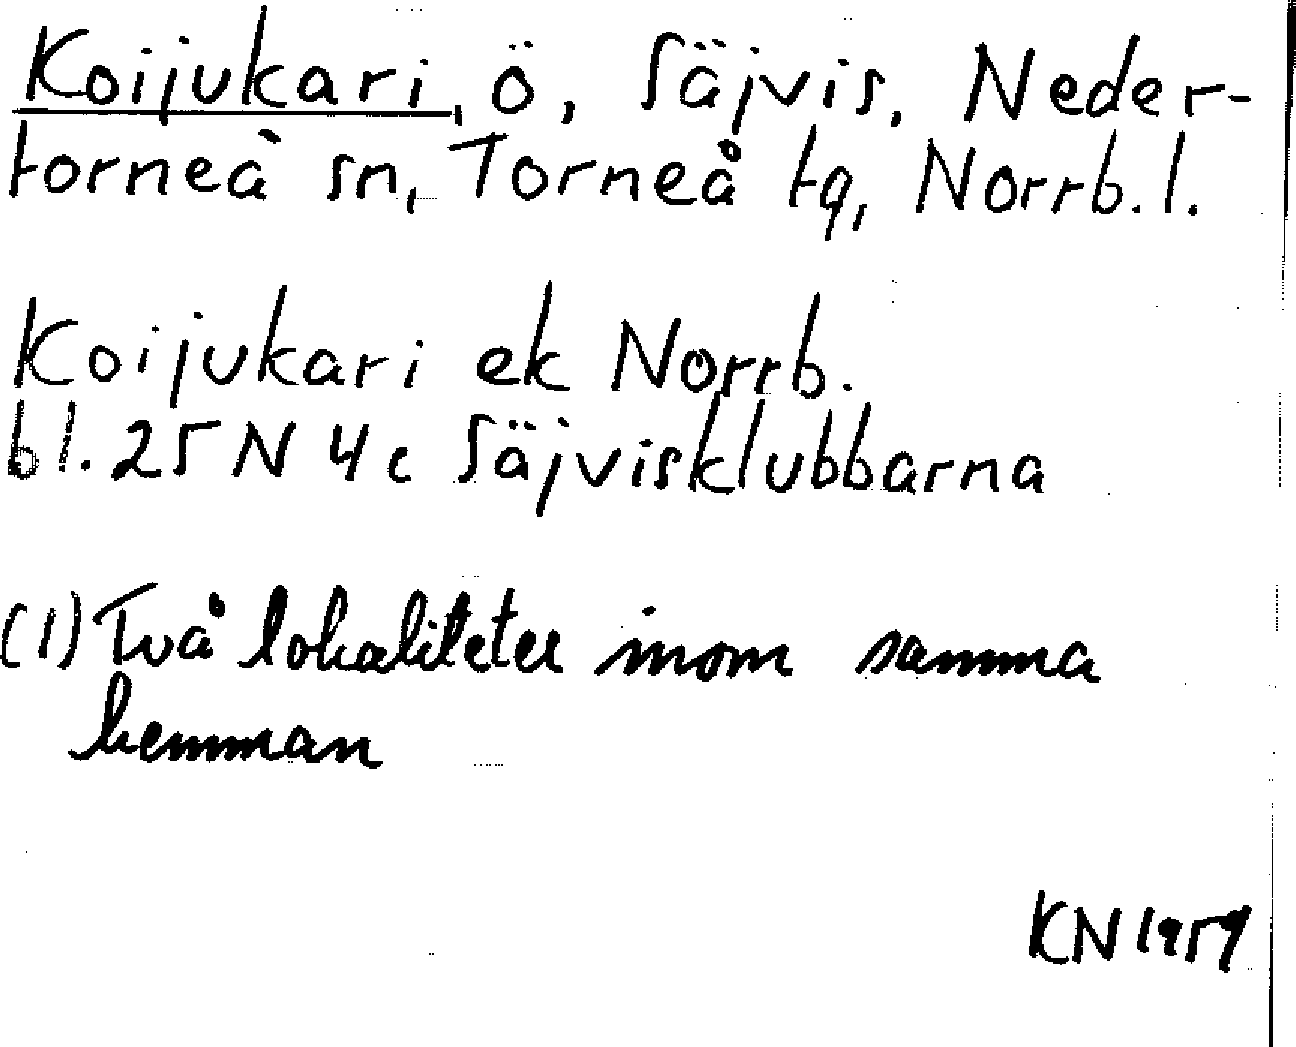 Koijukari, ö, Säjvis, Neder-
torneå sn, Torneå tg, Norrb. l.
Koijukari ek Norrb.
bl. 25 N 4 c Säjvisklubbarna
(1) Två lokaliteter inom samma
hemman
KN 1959